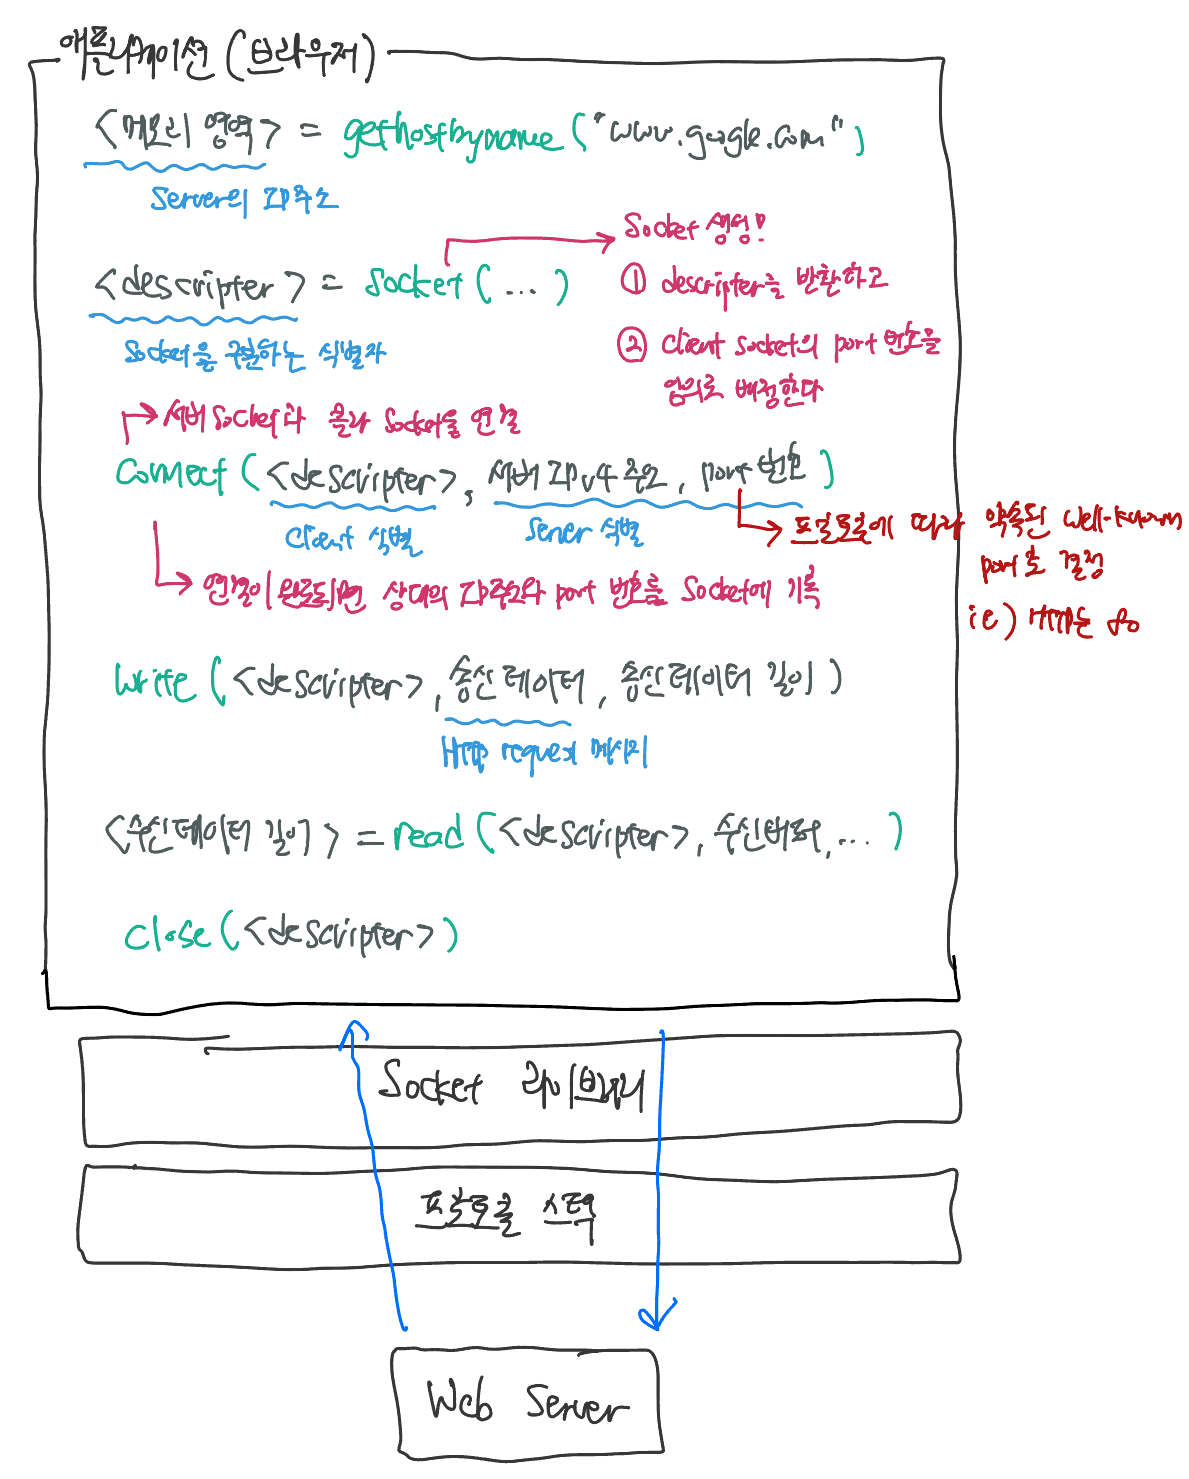 애플리케이션 (브라우저)
<메모리 영역> = gethostbyname("www.google.com")
Server의 IP주소
Socket 생성!
<descripter> = Socket(...)
① descripter를 반환하고
② Client Socket의 port 번호를
임의로 배정한다
Socket을 구분하는 식별자
서버 Socket과 클라 Socket을 연결
Connect(<descripter>, 서버 IPv4 주소, port 번호)
Client 식별
Server 식별
프로토콜에 따라 약속된 Well-known
port로 결정
ie) HTTP는 80
연결이 완료되면 상대의 IP주소와 port 번호를 Socket에 기록
Write(<descripter>, 송신 데이터, 송신 데이터 길이)
HTTP request 메시지
<수신 데이터 길이> = read(<descripter>, 수신버퍼, ...)
Close(<descripter>)
Socket 라이브러리
프로토콜 스택
Web Server